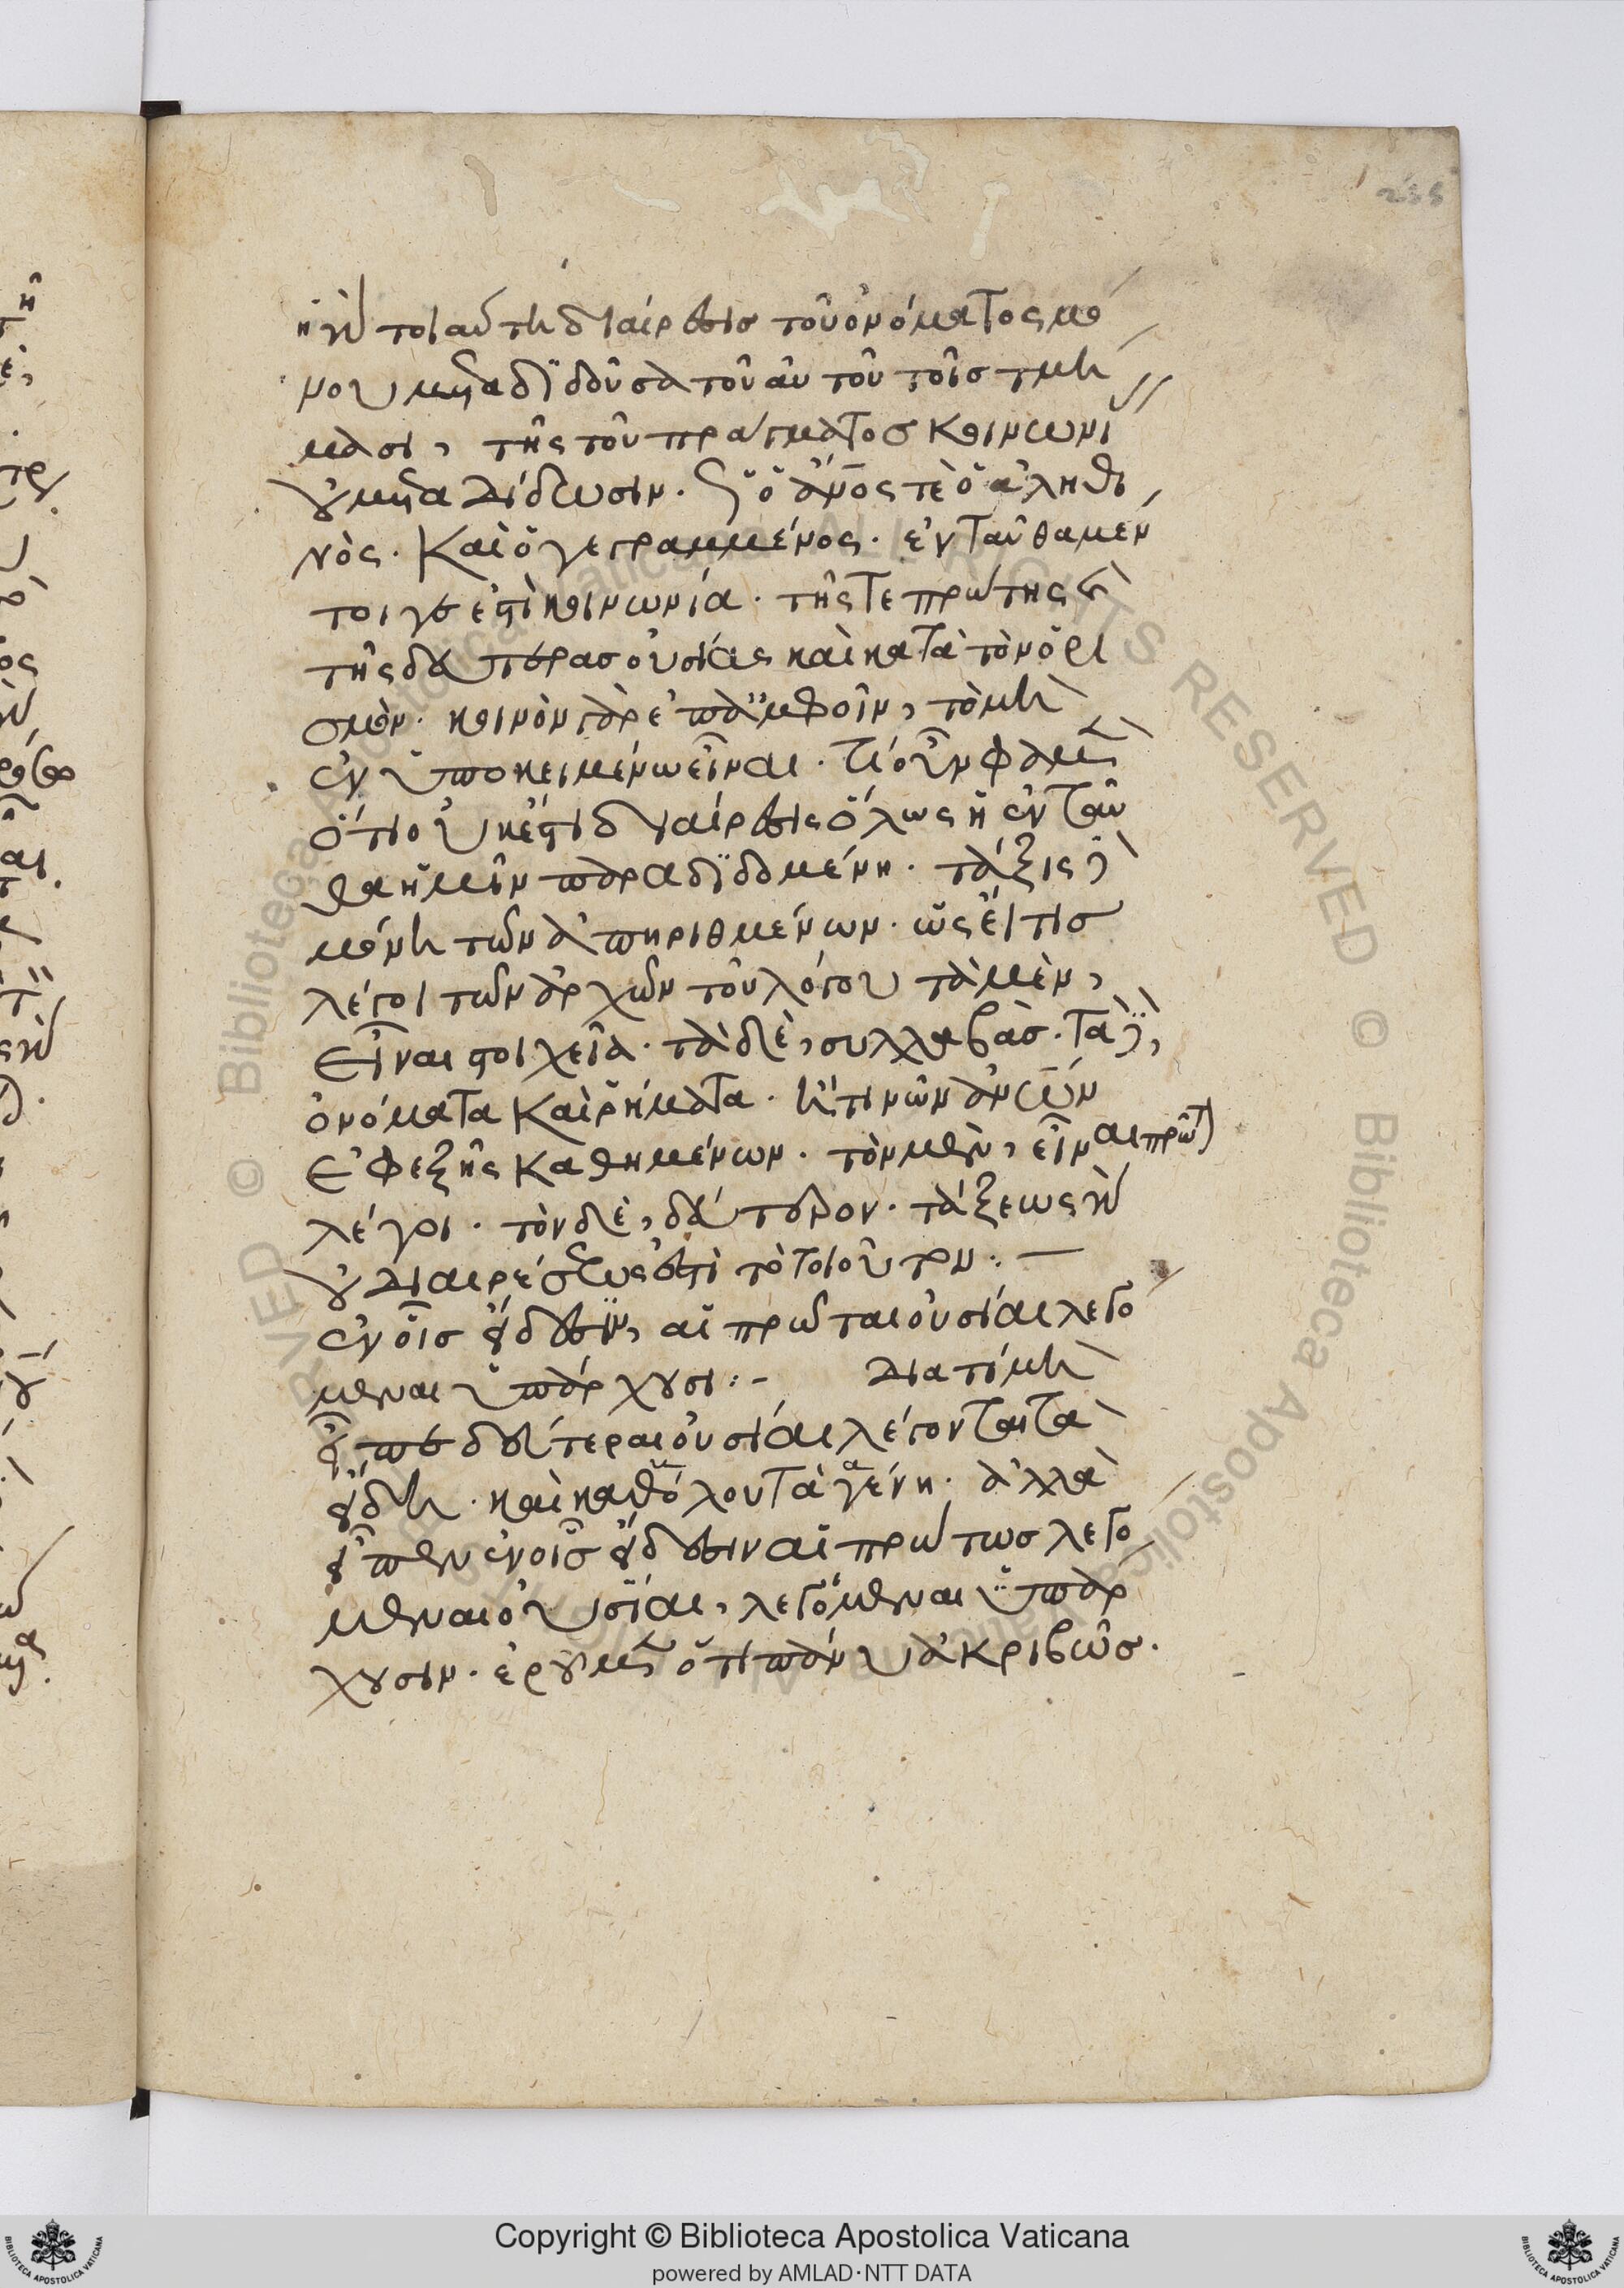 235
ἡ γὰρ τοιαύτη διαίρεσις τοῦ ὀνόματος μό
νου μεταδιδοῦσα τοῦ αὐτοῦ τοῖς τμή
μασι, τῆς τοῦ πράγματος κοινωνί
οὐ μεταδίδωσιν. ὁ ἄνος τε ὁ ἀληθι
νὸς. καὶ ὁ γεγραμμένος. ἐνταῦθα μέν
τοι γε ἐστὶ κοινωνία. τῆς τε πρώτης καὶ
τῆς δευτέρας οὐσίας καὶ κατὰ τὸν ὁρι
σμόν. κοινὸν γὰρ ἐπ' ἀμφοῖν, τὸ μὴ
ἐν ὑποκειμένω εἶναι. τί οὖν φαμεν
ὅτι οὐκ ἔστι διαίρεσις ὅλως ἡ ἐνταῦ
θα ἡμῖν παραδιδομένη. τάξις δὲ
μόνη τῶν ἀπηριθμένων. ὡς εἴ τις
λέγοι τῶν ἀρχῶν τοῦ λόγου τὰ μὲν,
εἶναι στοιχεῖα. τὰ δὲ, συλλαβὰς. τὰ δὲ,
ὀνόματα καὶ ῥήματα. ἤ τινῶν ἀνων
ἐφεξῆς καθημένων. τὸν μὲν, εἶναι πρῶτ
λέγοι. τὸν δὲ, δεύτερον. τάξεως γὰρ
οὐ διαιρέσεως ἐστὶ τὸ τοιοῦτον. —
ἐν οἷς εἴδεσιν, αἱ πρώτως οὐσίαι λεγό
μεναι ὑπάρχουσι :- Διατί μὴ
εἶπε δεύτεραι οὐσίαι λέγονται τὰ
εἴδη. καὶ καθόλου τὰ γένη. ἀλλὰ
εἶπεν ἐν οἷς εἴδεσιν αἱ πρώτως λεγό
μεναι οὐσίαι, λεγόμεναι ὑπάρ
χουσιν. ἐροῦμεν ὅτι πάνυ ἀκριβῶς.
© Biblioteca Apostolica Vaticana ALL RIGHTS RESERVED
Copyright © Biblioteca Apostolica Vaticana
powered by AMLAD·NTT DATA